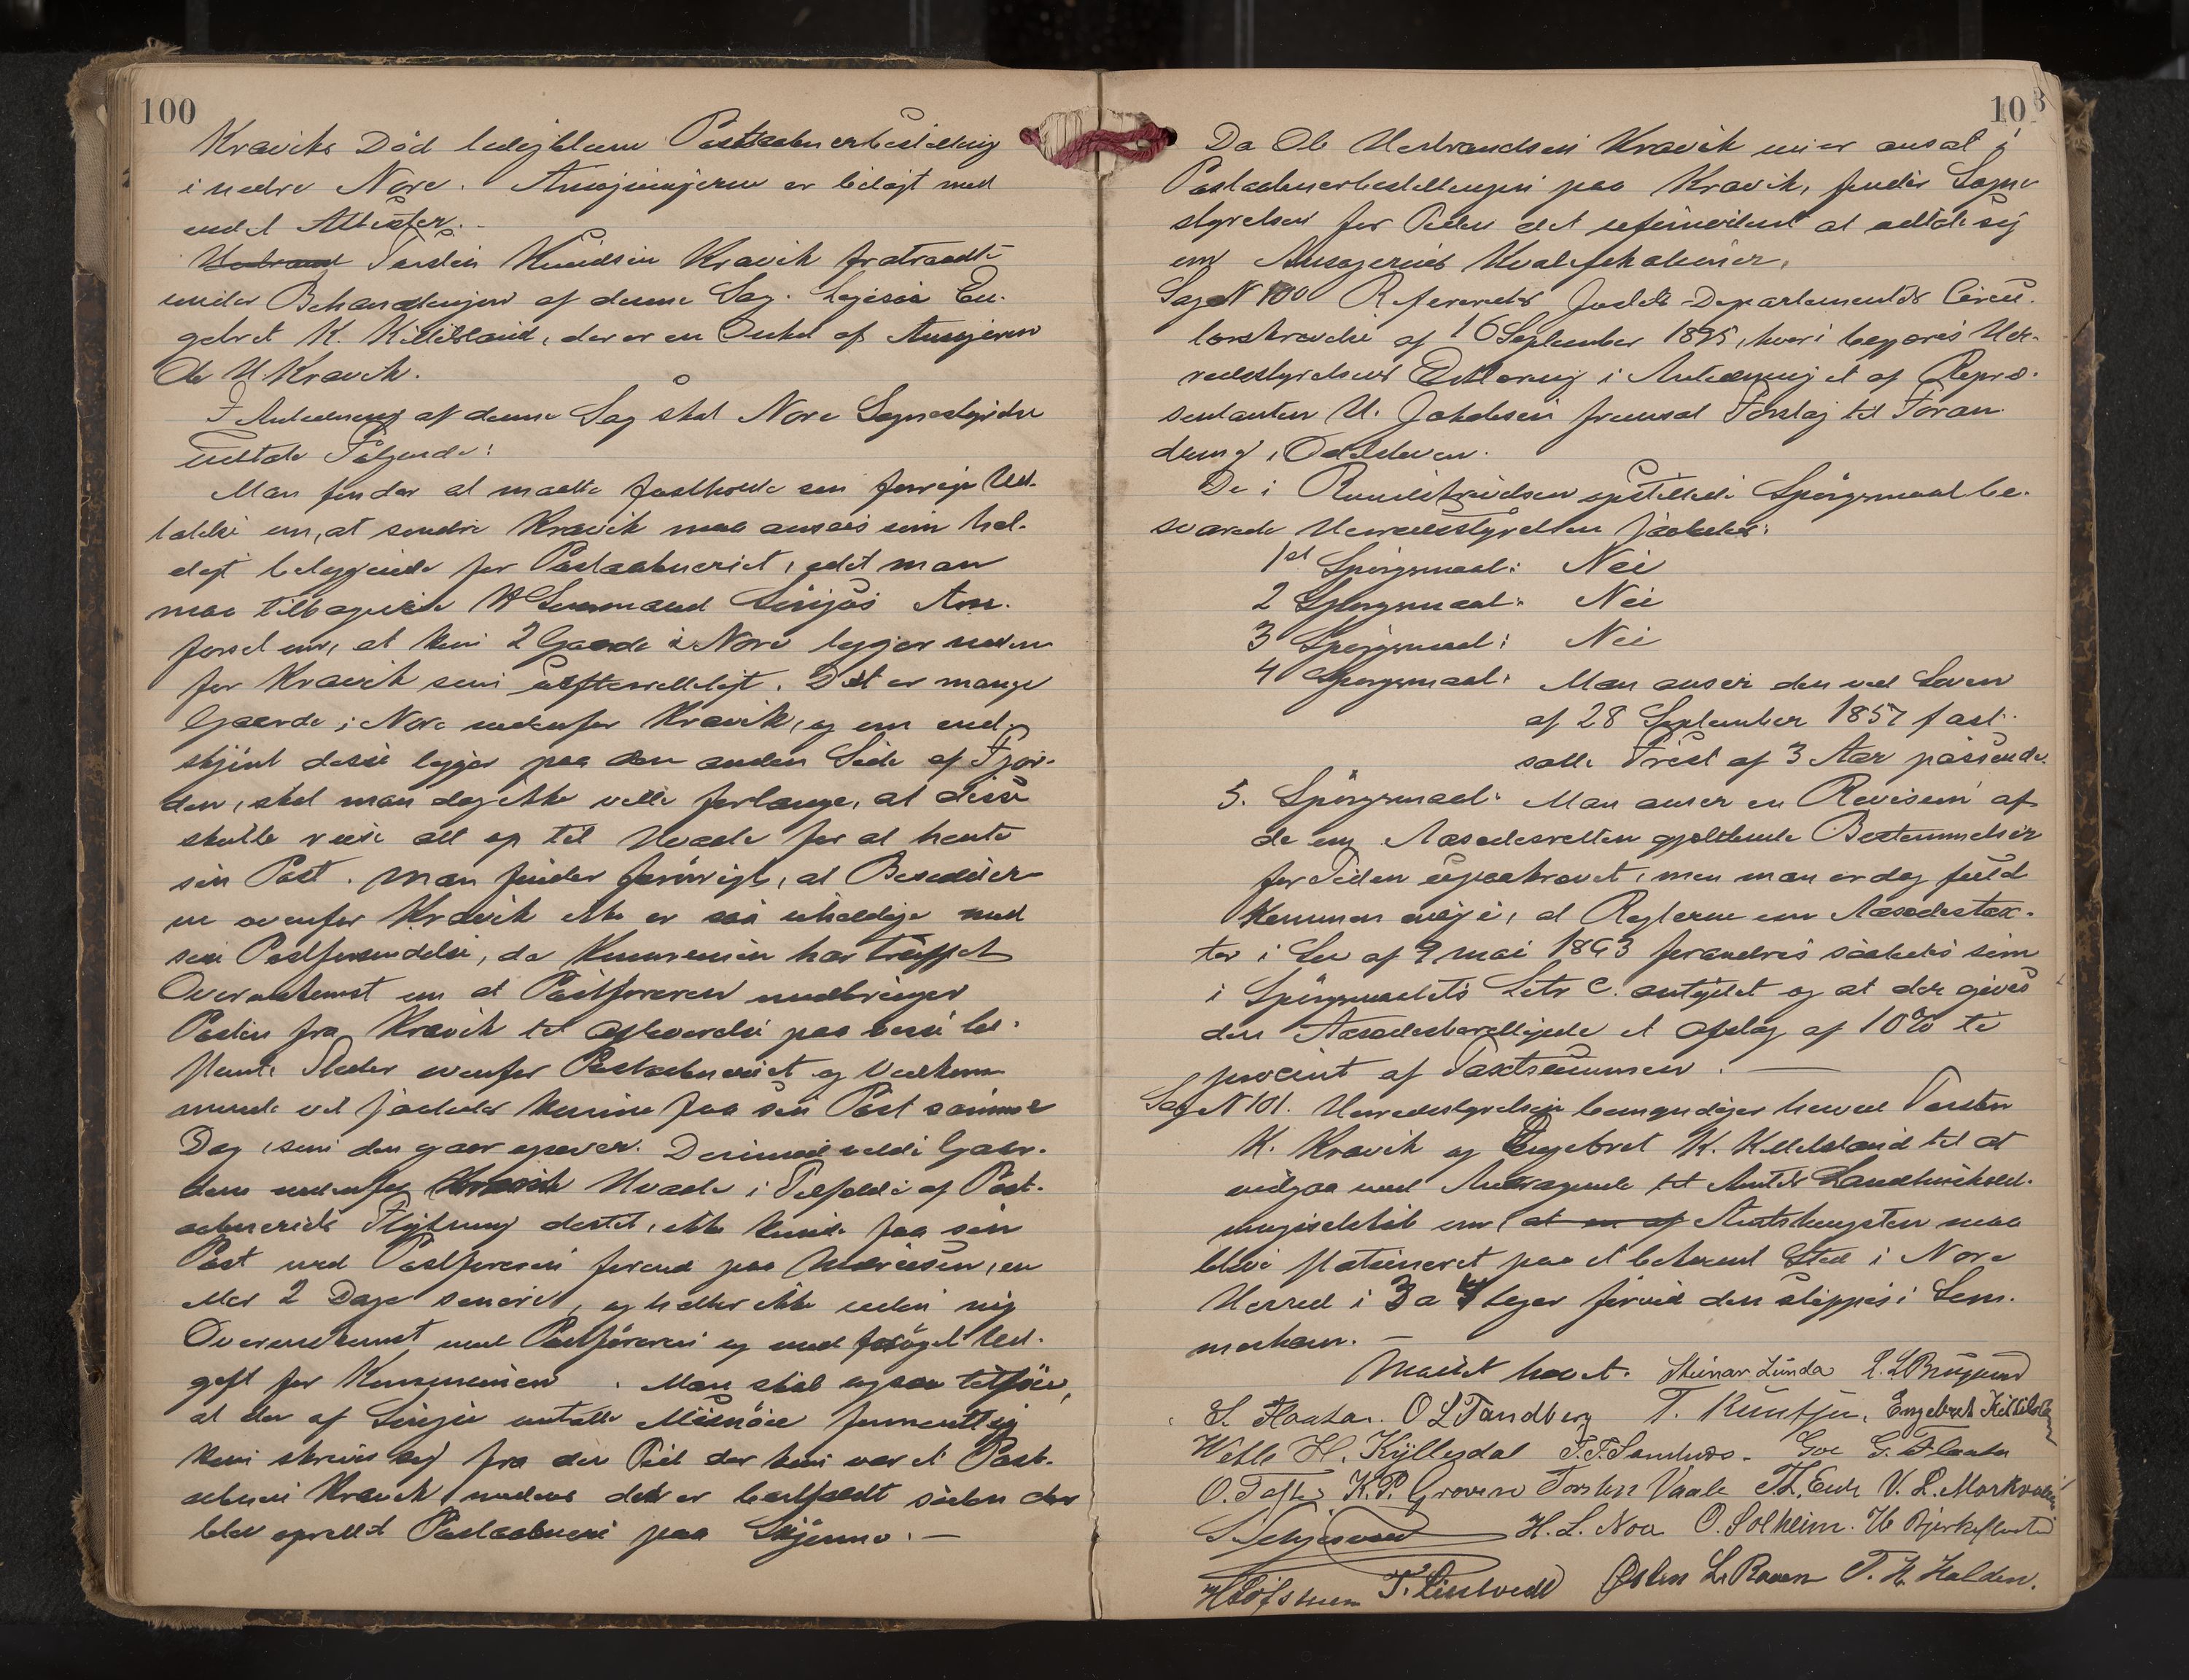 100
Kraviks Död ledigblevne Postaabnerbestilling
i nedre Nore. Ansøgningerne er bilagt med
endel Attester.
Torsten Knudsen Kravik fratraadte
under Behandlingen af denne Sag. Ligesaa En-
gebret K. Kittilsland, der er en Onkel af Ansøgeren
Ole H. Kravik.
I Anledning af denne Sag skal Nore Sognestyrelse
udtale Følgende:
Man finder at maatte fastholde sin forrige Ud-
talelse om, at søndre Kravik maa ansees som hel-
digst beliggende for Postaabneriet, idet man
maa tilbagevise Lensmand An-
førsel om, at kun 2 Gaarde i Nore ligger neden
for Kravik som . Det er mange
Gaarde i Nore nedenfor Kravik, og om end-
skjönt disse ligger paa den anden Side af Fjor-
den, skal man dog ikke ville forlange, at disse
skulle reise alt op til Hvaale for at hente
sin Post. Man finder forövrigt, at Beboer-
ne ovenfor Kravik ikke er saa uheldige med
sin Postforsendelse, da Kommunen har truffet
Overenskomst om at Postföreren medbringer
Posten fra Kravik til Aflevering paa visse be-
stemte Steder ovenfor Postaabneriet og Vedkom-
mende vil saaledes kunne faa sin Post samme
Dag, som den gaar opover. Derimod vilde Gaar-
dene nedenfor Hvaale i Tilfælde af Post-
aabneriets Flytning dertil, ikke kunde faa sin
Post med Postföreren förend paa , en
eller 2 Dage senere, og heller ikke uden ny
Overenskomst med Postföreren og med forøget Ud-
gift for Kommunen. Man skal ogsaa tilföie,
at den af omtalte Misnöie formentlig
kun skriver sig fra den Tid der kun var et Post-
aabneri Kravik, medens det er bortfaldt siden der
blev oprettet Postaabneri paa Skjönne. —
10
Da Ole Herbrandsen Kravik nu er ansat i
Postaabnerbestillingen paa Kravik, finder Sogne-
styrelsen for Tiden det ufornødent at udtale sig
om Ansøgernes Kvalifikationer.
Sag N 100 Refereredes Justits-Departementets Circu-
lærskrivelse af 16 September 1895, hvori begjæres Her-
redsstyrelsens Erklæring i Anledning et af Repræ-
sentanten U. Jakobsen fremsat Forslag til Foran-
dring i Odelsloven.
De i Rundskrivelsen opstillede Spørgsmaal be-
svarede Herredsstyrelsen saaledes:
1ste Spørgsmaal: Nei
2 Spørgsmaal: Nei
3 Spørgsmaal: Nei
4 Spørgsmaal: Man anser den ved Loven
af 28 September 1857 fast-
satte Frist af 3 Aar passende.
5. Spörgsmaal: Man anser en Revision af
de om Aasædesretten gjældende Bestemmelser
for Tiden upaakrævet, men man er dog fuld-
kommen enig i, at Reglerne om Aasædestax-
ter i Lov af 9 mai 1863 forandres saaledes som
i Spörgsmaalets Litr C. antydet og at der gives
den Aasædesberettigede et Afslag af 10% ti
procent af Taxtsummen. —
Sag N 101. Herredsstyrelsen bemyndiger herved Torsten
K. Kravik og Engebret K. Kittilsland til at
indgaa med Andragende til Amtets Landhushold-
ningsselskab om, at en af Amtshingsten maa
blive stationeret paa et bekvemt Sted i Nore
Herred i 3 a 4 Uger förend den slippes i Som-
merhavn. —
Mødet hævet. Steinar Lunda
S. Flaata. O L Tandberg T. Engebret Kittilsland
H. Kyllesdal G. Flaata
O. Tofte K. P. Groven Torsten Vaale Th. Eide
H. L. Noa O. Solheim.
Østen L. Raaen T. H. Halden.